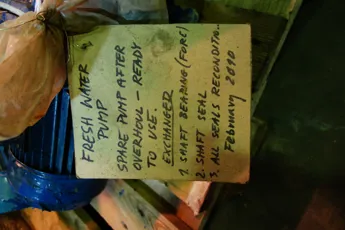 FRESH WATER
PUMP
SPARE PUMP AFTER
OVERHOUL - READY
TO USE.
EXCHANGER
1. SHAFT BEARING (FORE)
2. SHAFT SEAL
3. ALL SEALS RECONDITIO..
February 2010